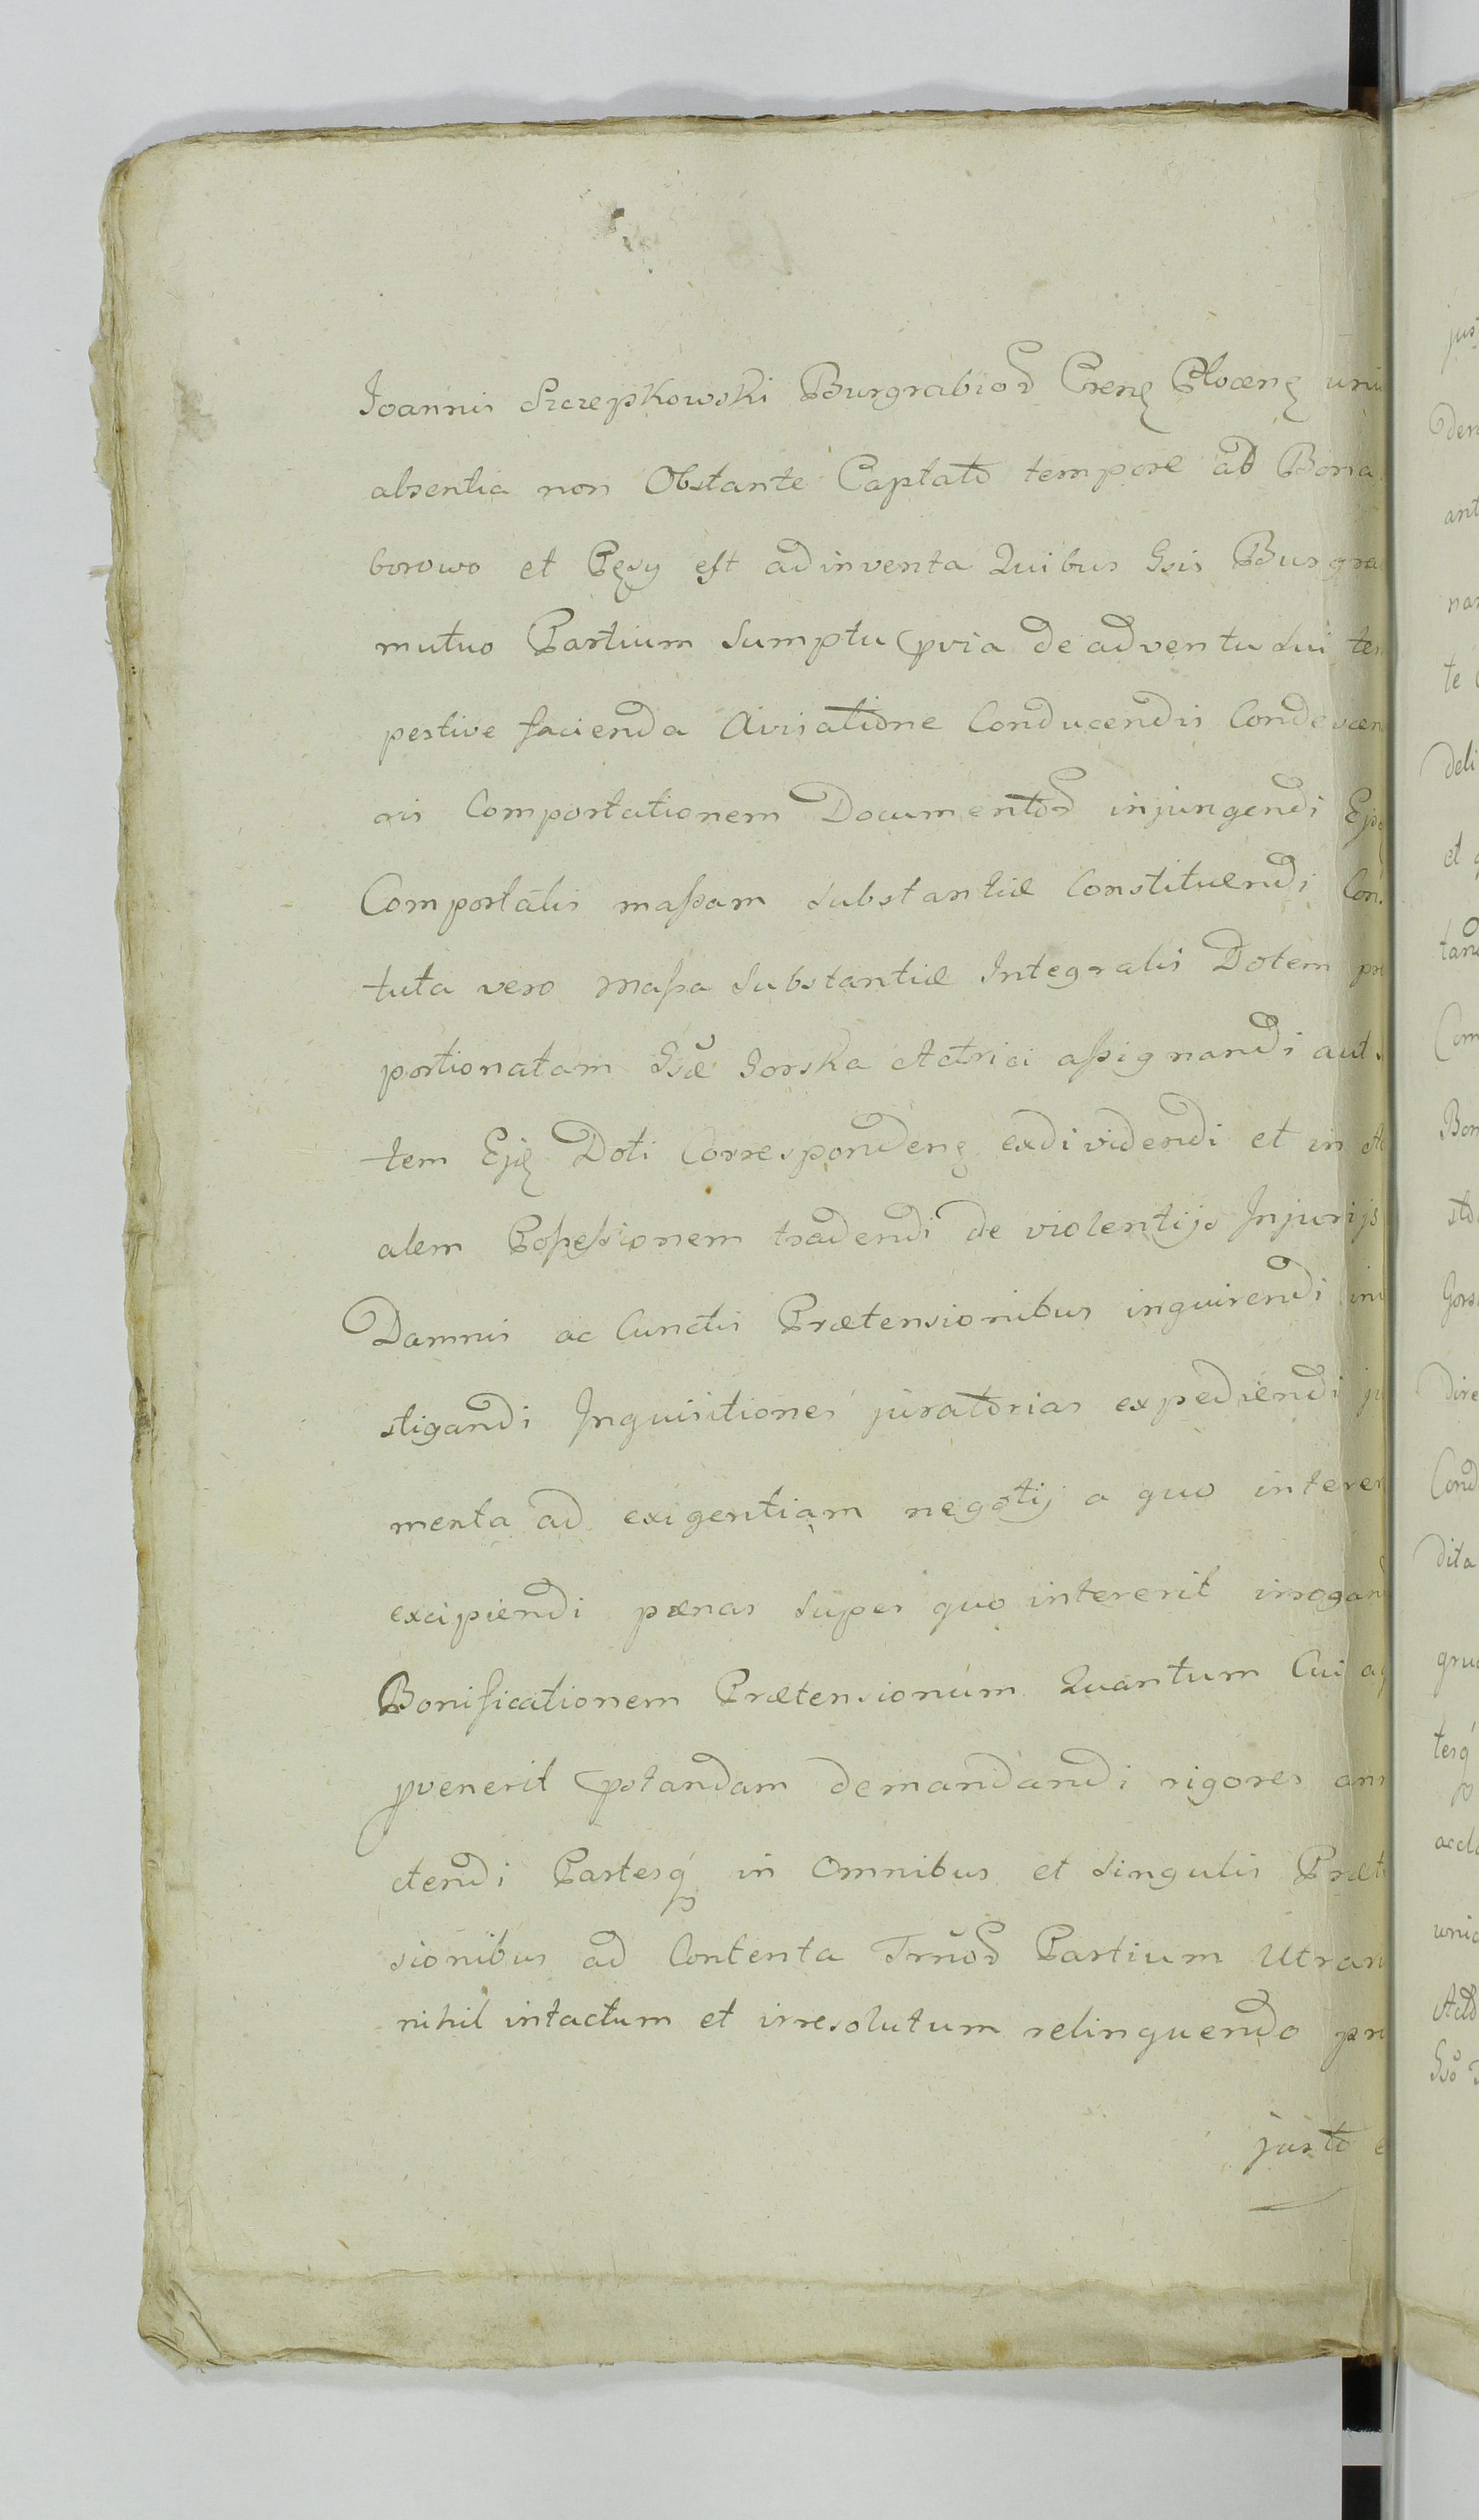 Joannis Szczepkowski Burgrabior Crens Plocens
absentia non Obstante Captato tempore ad Bona
borowo et Pęsy est adinventa Quibus Gsis Burgra
mutuo Partium Sumptu pvia de adventu sui tem
pestive facienda Avisatione Conducendis Condescen
ois Comportationem Documentor injungendi
Comportatis massam Substantiæ Constituendi Con
tuta vero massa Substantiæ Integralis Dotem pro
portionatam Gsæ Gorska Actrici assignandi aut
tem Ejs Doti Correspondens exdividendi et in
alem Possessionem tradendi de violentijs Injurijs
Damnis ac Cunctis Prætensionibus inquirendi inv
stigandi Inquisitiones juratorias expediendi ju
menta ad exigentiam negotij a quo interer
excipiendi pænas super quo intererit irrogand
Bonificationem Prætensionum Quantum Cui
pvenerit pstandam demandandi rigores ann
ctendi Partesq in Omnibus et Singulis Præt
sionibus ad Contenta Trnor Partium Utran
nihil intactum et irresolutum relinquendo pr
justo